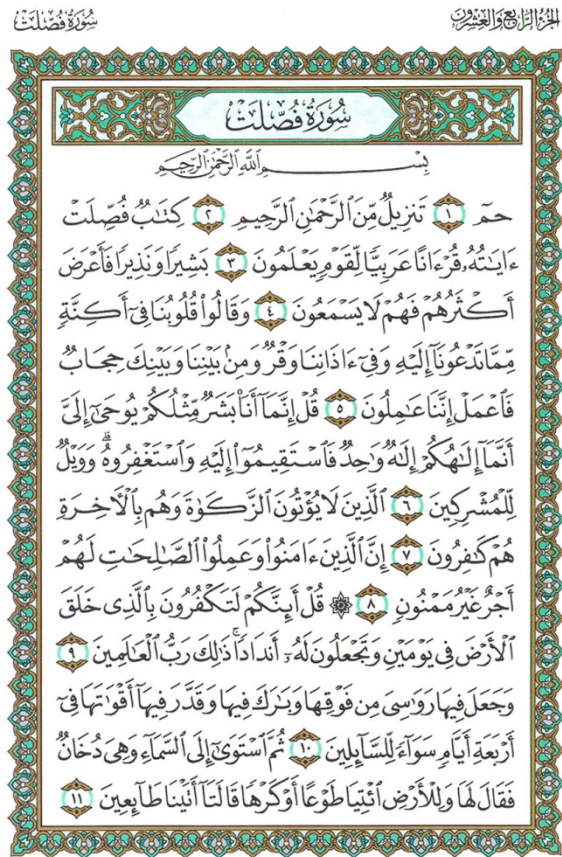 سُورَةُ فُصِّلَتْ
الجُزْءُ الرَّابِعُ وَالعِشْرُونَ
سُورَةُ فُصِّلَتْ
بِسْمِ ٱللَّهِ ٱلرَّحْمَٰنِ ٱلرَّحِيمِ
حمٓ ١ تَنزِيلٌ مِّنَ ٱلرَّحْمَٰنِ ٱلرَّحِيمِ ٢ كِتَٰبٌ فُصِّلَتْ
ءَايَٰتُهُۥ قُرْءَانًا عَرَبِيًّا لِّقَوْمٍ يَعْلَمُونَ ٣ بَشِيرًا وَنَذِيرًا فَأَعْرَضَ
أَكْثَرُهُمْ فَهُمْ لَا يَسْمَعُونَ ٤ وَقَالُوا۟ قُلُوبُنَا فِىٓ أَكِنَّةٍ
مِّمَّا تَدْعُونَآ إِلَيْهِ وَفِىٓ ءَاذَانِنَا وَقْرٌ وَمِنۢ بَيْنِنَا وَبَيْنِكَ حِجَابٌ
فَٱعْمَلْ إِنَّنَا عَٰمِلُونَ ٥ قُلْ إِنَّمَآ أَنَا۠ بَشَرٌ مِّثْلُكُمْ يُوحَىٰٓ إِلَىَّ
أَنَّمَآ إِلَٰهُكُمْ إِلَٰهٌ وَٰحِدٌ فَٱسْتَقِيمُوٓا۟ إِلَيْهِ وَٱسْتَغْفِرُوهُ ۗ وَوَيْلٌ
لِّلْمُشْرِكِينَ ٦ ٱلَّذِينَ لَا يُؤْتُونَ ٱلزَّكَوٰةَ وَهُم بِٱلْءَاخِرَةِ
هُمْ كَٰفِرُونَ ٧ إِنَّ ٱلَّذِينَ ءَامَنُوا۟ وَعَمِلُوا۟ ٱلصَّٰلِحَٰتِ لَهُمْ
أَجْرٌ غَيْرُ مَمْنُونٍ ٨ ۞ قُلْ أَئِنَّكُمْ لَتَكْفُرُونَ بِٱلَّذِى خَلَقَ
ٱلْأَرْضَ فِى يَوْمَيْنِ وَتَجْعَلُونَ لَهُۥٓ أَندَادًا ۚ ذَٰلِكَ رَبُّ ٱلْعَٰلَمِينَ ٩
وَجَعَلَ فِيهَا رَوَٰسِىَ مِن فَوْقِهَا وَبَٰرَكَ فِيهَا وَقَدَّرَ فِيهَآ أَقْوَٰتَهَا فِىٓ
أَرْبَعَةِ أَيَّامٍ سَوَآءً لِّلسَّآئِلِينَ ١٠ ثُمَّ ٱسْتَوَىٰٓ إِلَى ٱلسَّمَآءِ وَهِىَ دُخَانٌ
فَقَالَ لَهَا وَلِلْأَرْضِ ٱئْتِيَا طَوْعًا أَوْ كَرْهًا قَالَتَآ أَتَيْنَا طَآئِعِينَ ١١